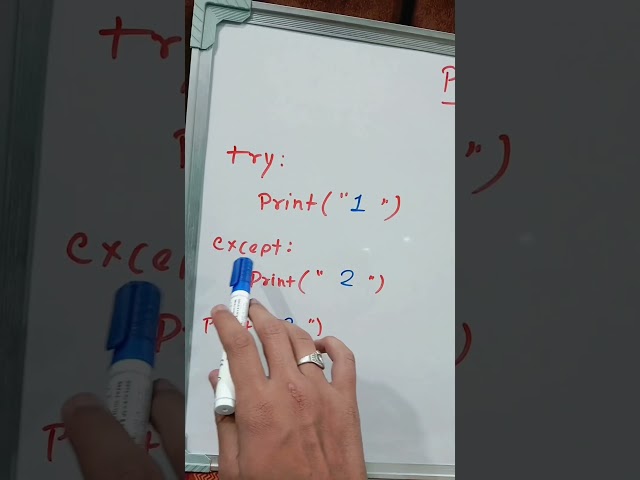 P
try:
Print(" 1 ")
except:
Print(" 2 ")
P ")